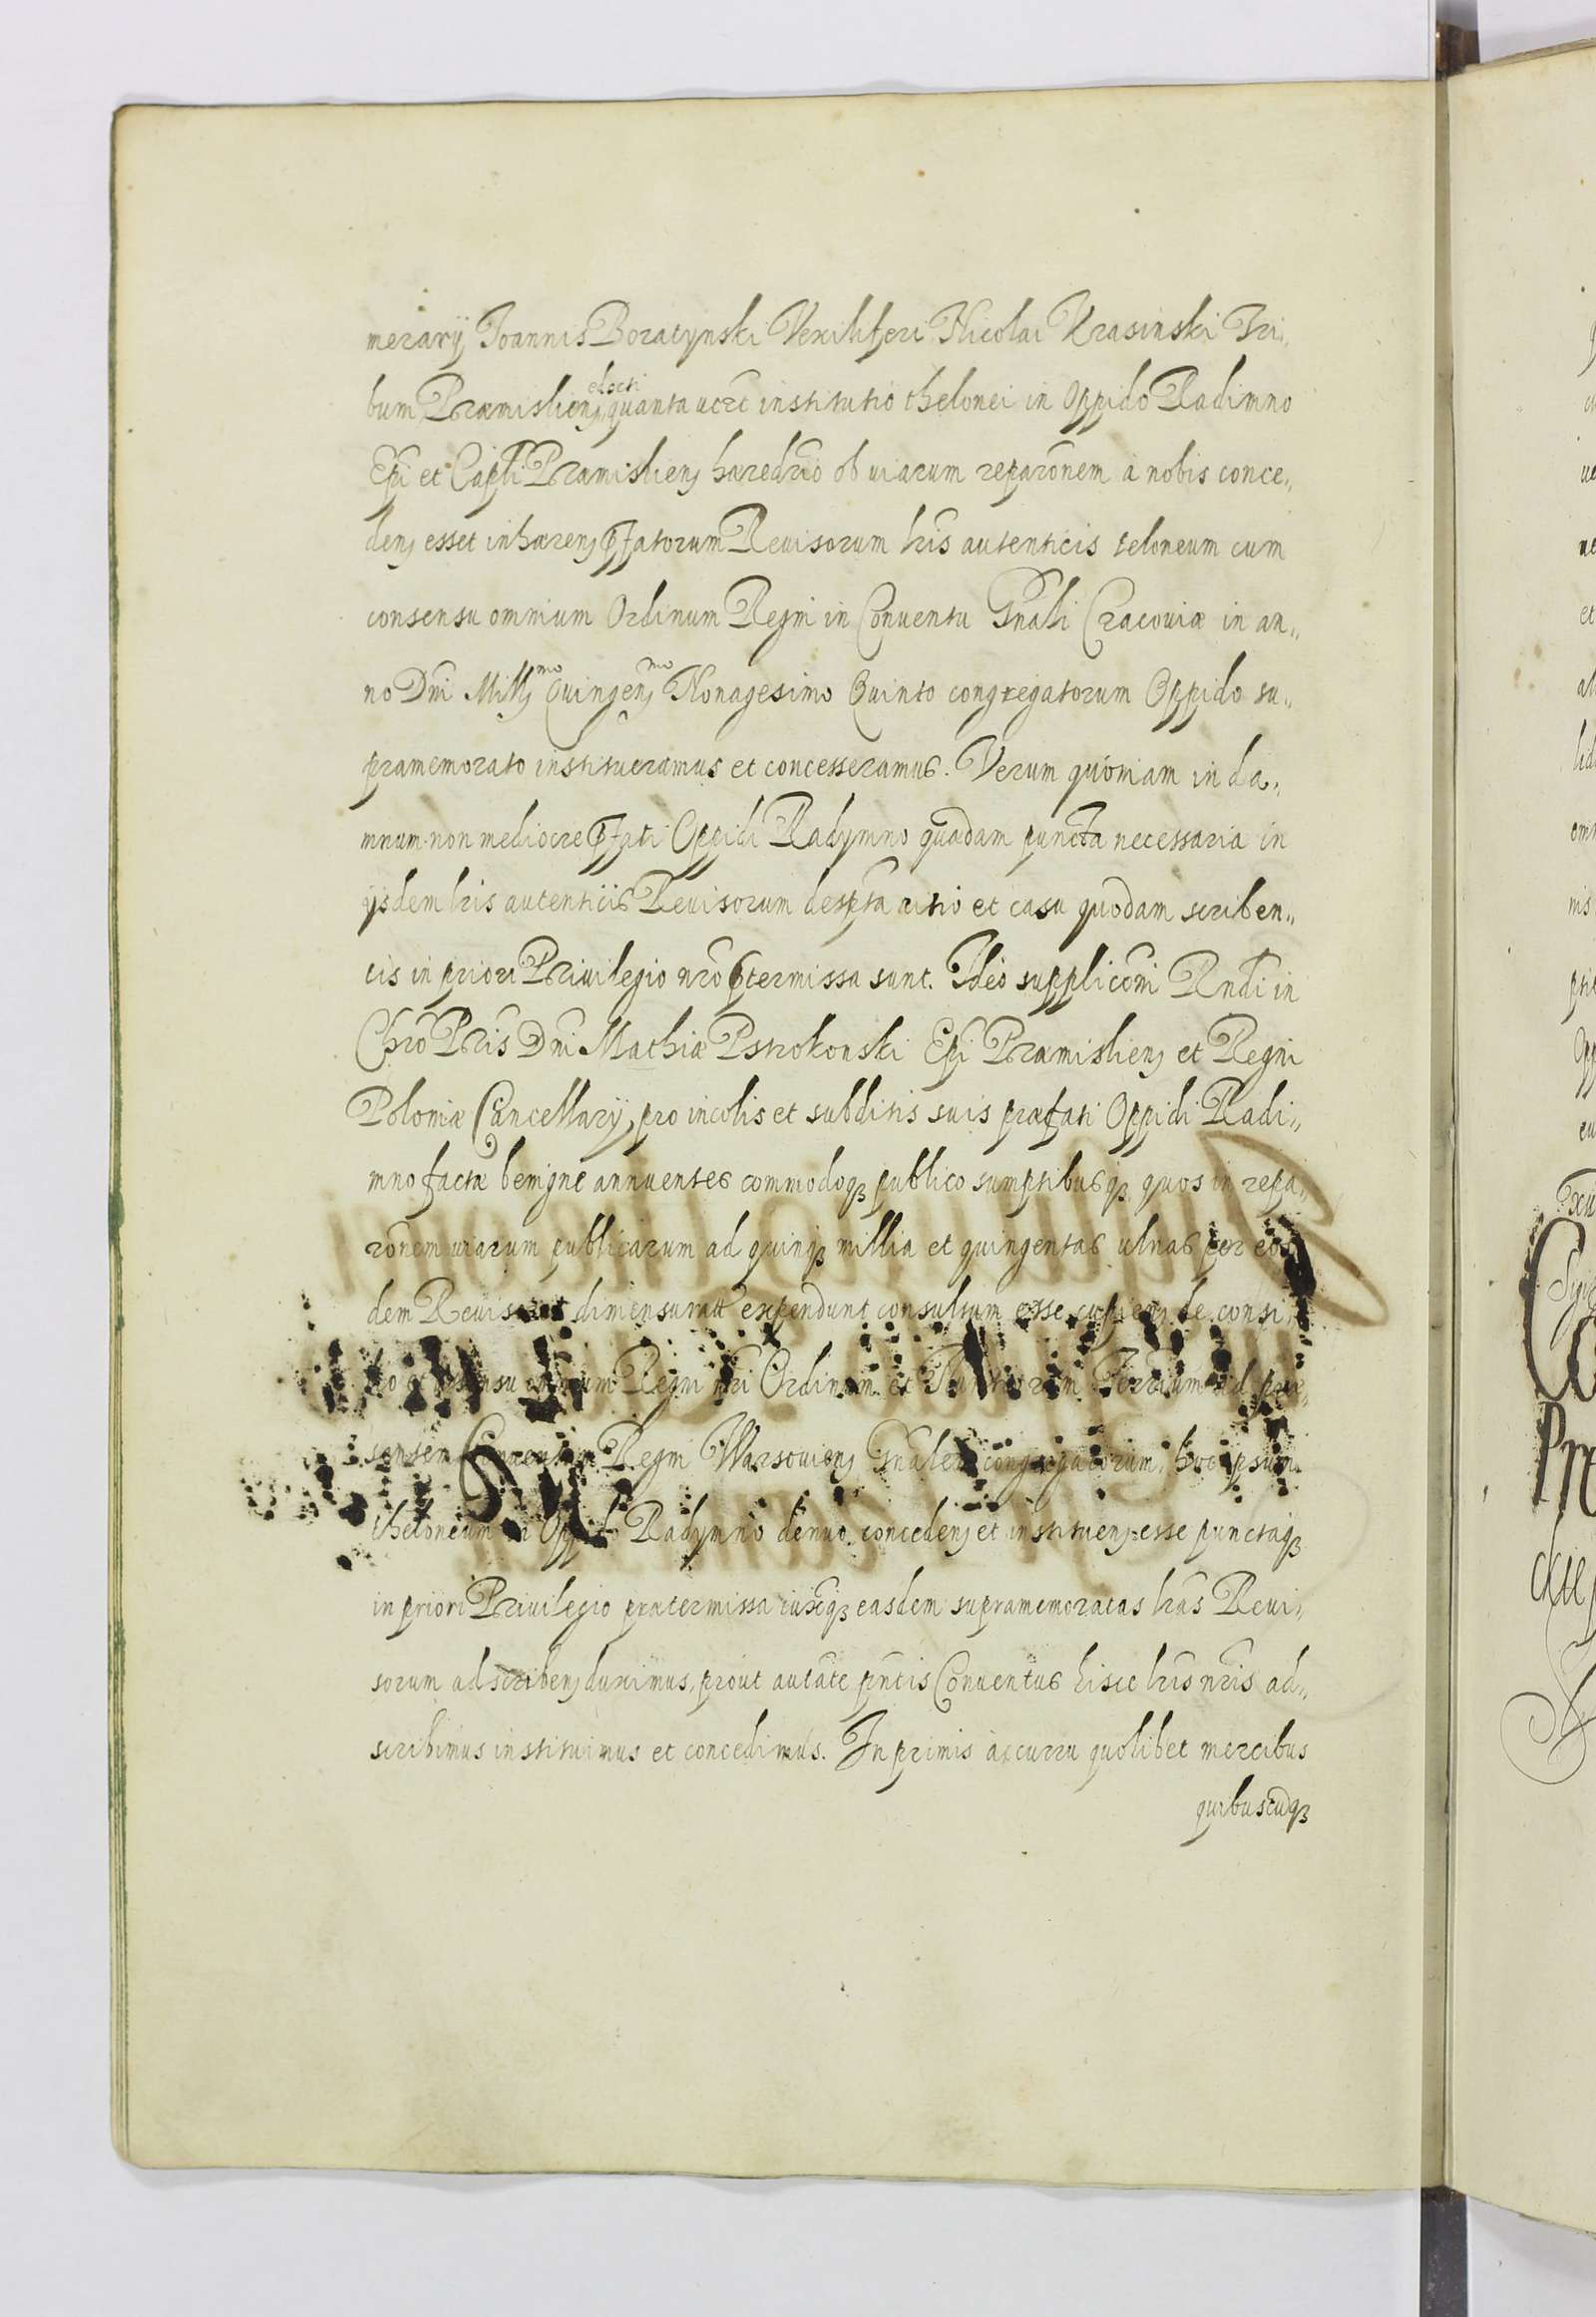 merarij Joannis Boratynski Vexiliferi Nicolai Krasinski Tri„
bum Præmisliens electi quanta vero institutio thelonei in Oppido Radimno
Epi et Capli Præmisliens hæredrio ob viarum reparonem a nobis conce„
dens esset inhærens pfatorum Revisorum lris autenticis teloneum cum
consensu omnium Ordinum Regni in Conventu Gnali Cracoviæ in an„
no Dni Milles mo Quingens mo Nonagesimo Quinto congregatorum Oppido su„
pramemorato institueramus et concesseramus. Verum quoniam in da„
mnum non mediocre pfati Oppidi Radymno quædam puncta necessaria in
ijsdem lris autenticis Revisorum descpta vitio et casu quodam scriben„
tis in priori Privilegio nro ptermissa sunt. Ideo supplicõni Rndi in
Chro Pris Dni Mathiæ Pstrokonski Epi Præmisliens et Regni
Poloniæ Cancellarij, pro incolis et subditis suis præfati Oppidi Radi„
mno factæ benigne annuentes commodoq3 publico sumptibusq3 quos in repa„
ronem viarum publicarum ad quinq3 millia et quingentas ulnas per eos„
dem Revisores dimensuratt expendunt consultum esse cupiens de consi„
et Regni nri Ordinum et Nuntiorum Terrium ad præ„
sentem Conventum Regni Warsoviens Gnalem congregatorum, hoc ipsum
theloneum in Oppido Radymno denuo concedens et instituens esse punctaq3
in priori Privilegio prætermissa iuxtq3 easdem supramemoratas lras Revi„
sorum adscribens duximus, prout autate pntis Conventus hisce lris nris ad„
scribimus instituimus et concedimus. In primis a curru quolibet mercibus
quibuscuq3